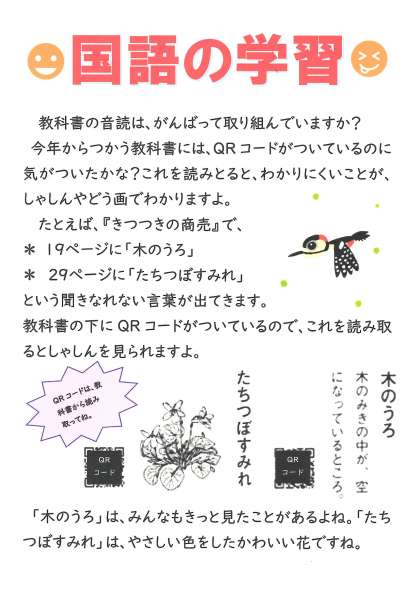 国語の学習
教科書の音読は、がんばって取り組んでいますか？
今年からつかう教科書には、QRコードがついているのに
気がついたかな？これを読みとると、わかりにくいことが、
しゃしんやどう画でわかりますよ。
たとえば、『きつつきの商売』で、
＊ 19ページに「木のうろ」
＊ 29ページに「たちつぼすみれ」
という聞きなれない言葉が出てきます。
教科書の下にQRコードがついているので、これを読み取
るとしゃしんを見られますよ。
木のうろ
木のみきの中が、空
になっているところ。
QR
コード
たちつぼすみれ
QR
コード
QRコードは、教
科書から読み
取ってね。
「木のうろ」は、みんなもきっと見たことがあるよね。「たち
つぼすみれ」は、やさしい色をしたかわいい花ですね。